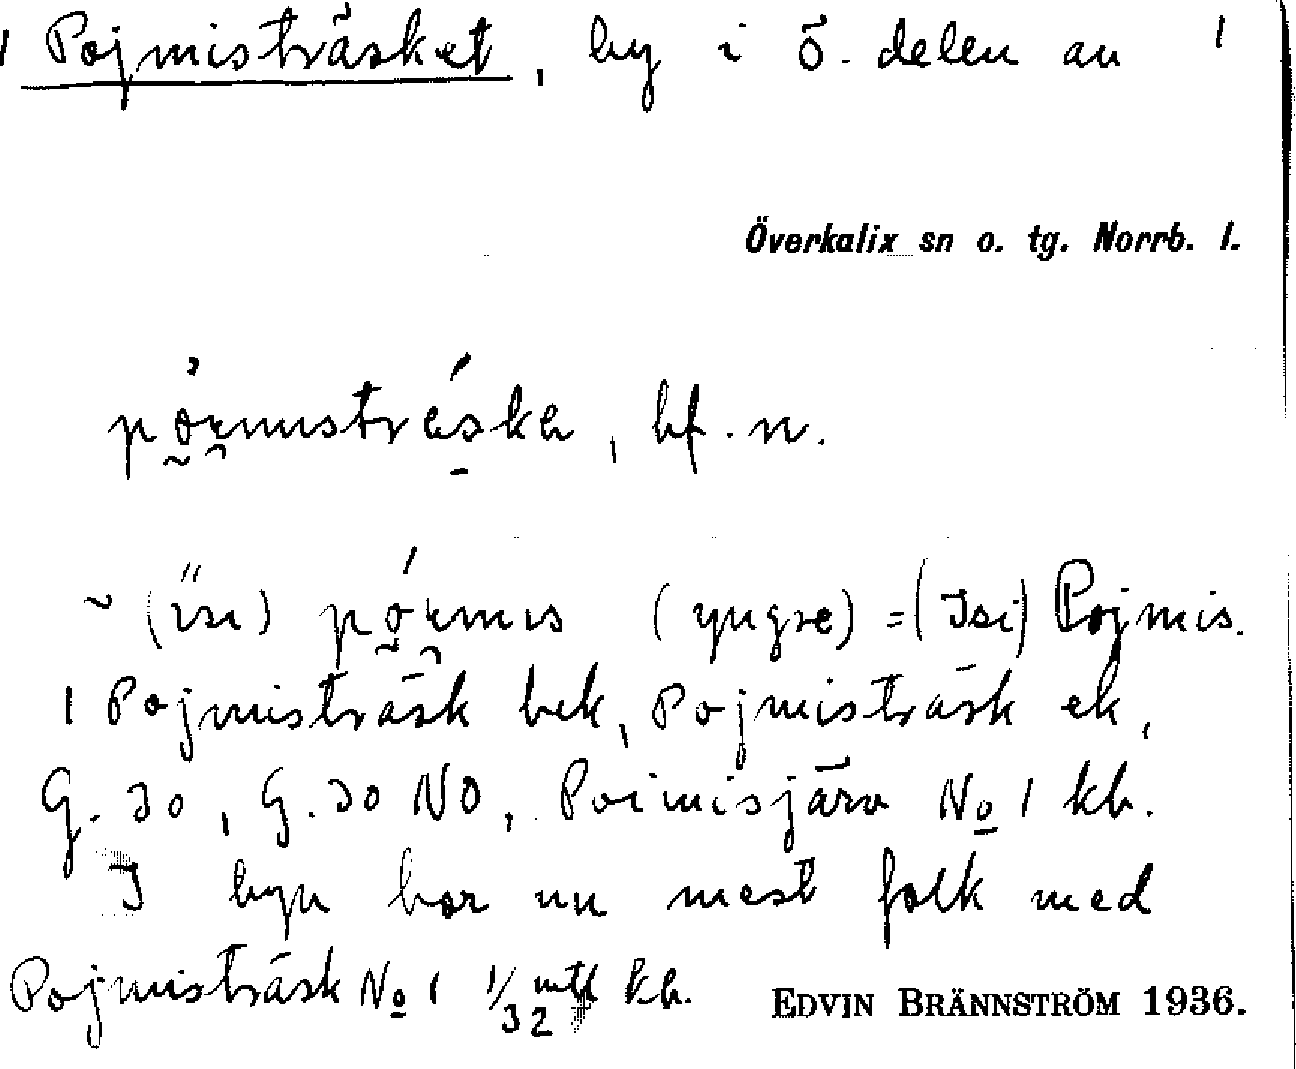 Pojmisträsket, by i ö. delen av
Överkalix sn o. tg. Norrb. l.
bf. n.
~ (yngre) = (Isi) Pojmis.
1 Pojmisträsk bek, Pojmisträsk ek,
G. 30, G. 30 NO, Poimisjärv No 1 kb.
I byn bor nu mest folk med
Pojmisträsk No 1 1/32 mtl kb.
EDVIN BRÄNNSTRÖM 1936.